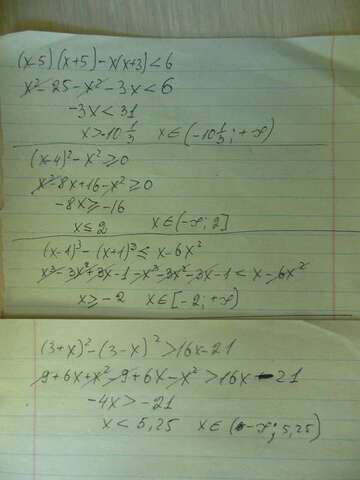 (x-5)(x+5)-x(x+3)<6
x²-25-x²-3x<6
-3x<31
x>-10 1/3 x∈(-10 1/3; +∞)
(x-4)²-x²≥0
x²-8x+16-x²≥0
-8x≥-16
x≤2 x∈(-∞; 2]
(x-1)³-(x+1)³≤x-6x²
x³-3x²+3x-1-x³-3x²-3x-1<x-6x²
x≥-2 x∈[-2; +∞)
(3+x)²-(3-x)²>16x-21
9+6x+x²-9+6x-x²>16x-21
-4x>-21
x<5,25 x∈(-∞; 5,25)